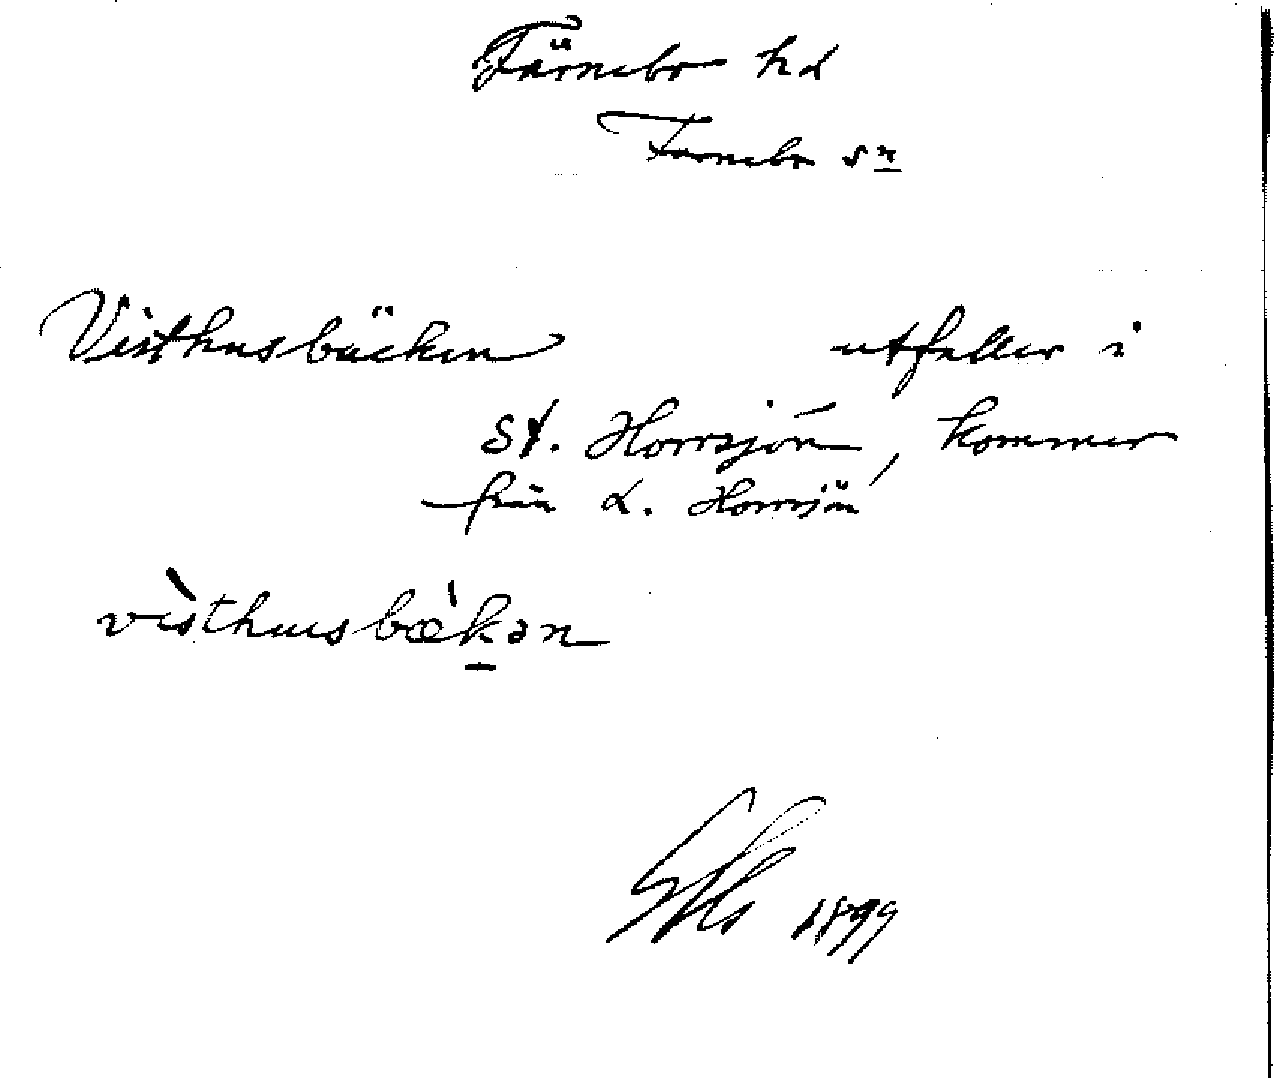 Färnebo hd
Färnebo sn
Visthusbäcken utfaller i
St. Horrsjön, kommer
från L. Horrsjön
vìsthusbæ̀kən
1899